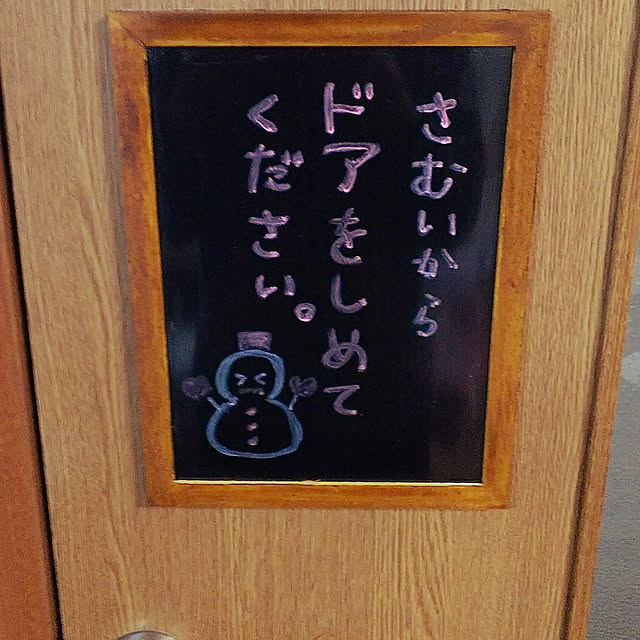 さむいから
ドアをしめて
ください。